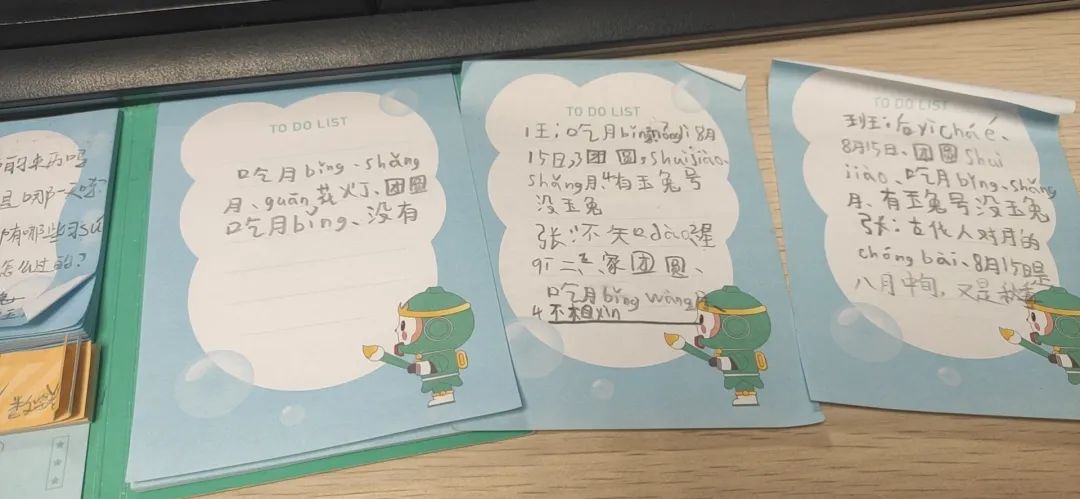 的来历吗
是哪一天呀?
有哪些习sú
怎么过的?
TO DO LIST
吃月bǐng、shǎng
月、guān花火丁、团圆
吃月bǐng、没有
TO DO LIST
1王:吃月bǐng 8月
15日,3团圆,shuijiào、
shǎng月、4有玉兔号
没玉兔
张:不知dào
家团圆、
吃月bǐng wàng月
4不相xìn
TO DO LIST
班:后yì cháng é、
8月15日、团圆shuì
jiào、吃月bǐng、shǎng
月、有玉兔号没玉兔
张:古代人对月的
chóng bài、8月15日是
八月中旬,又是秋